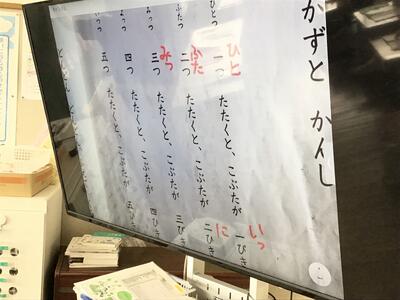 かずと かんじ
ひとつ
ひと
一つ たたくと、こぶたが 一ぴき
いっ
ふたつ
ふた
二つ たたくと、こぶたが 二ひき
に
みっつ
みっ
三つ たたくと、こぶたが 三びき
よっつ
四つ たたくと、こぶたが 四ひき
いつつ
五つ たたくと、こぶたが 五ひき